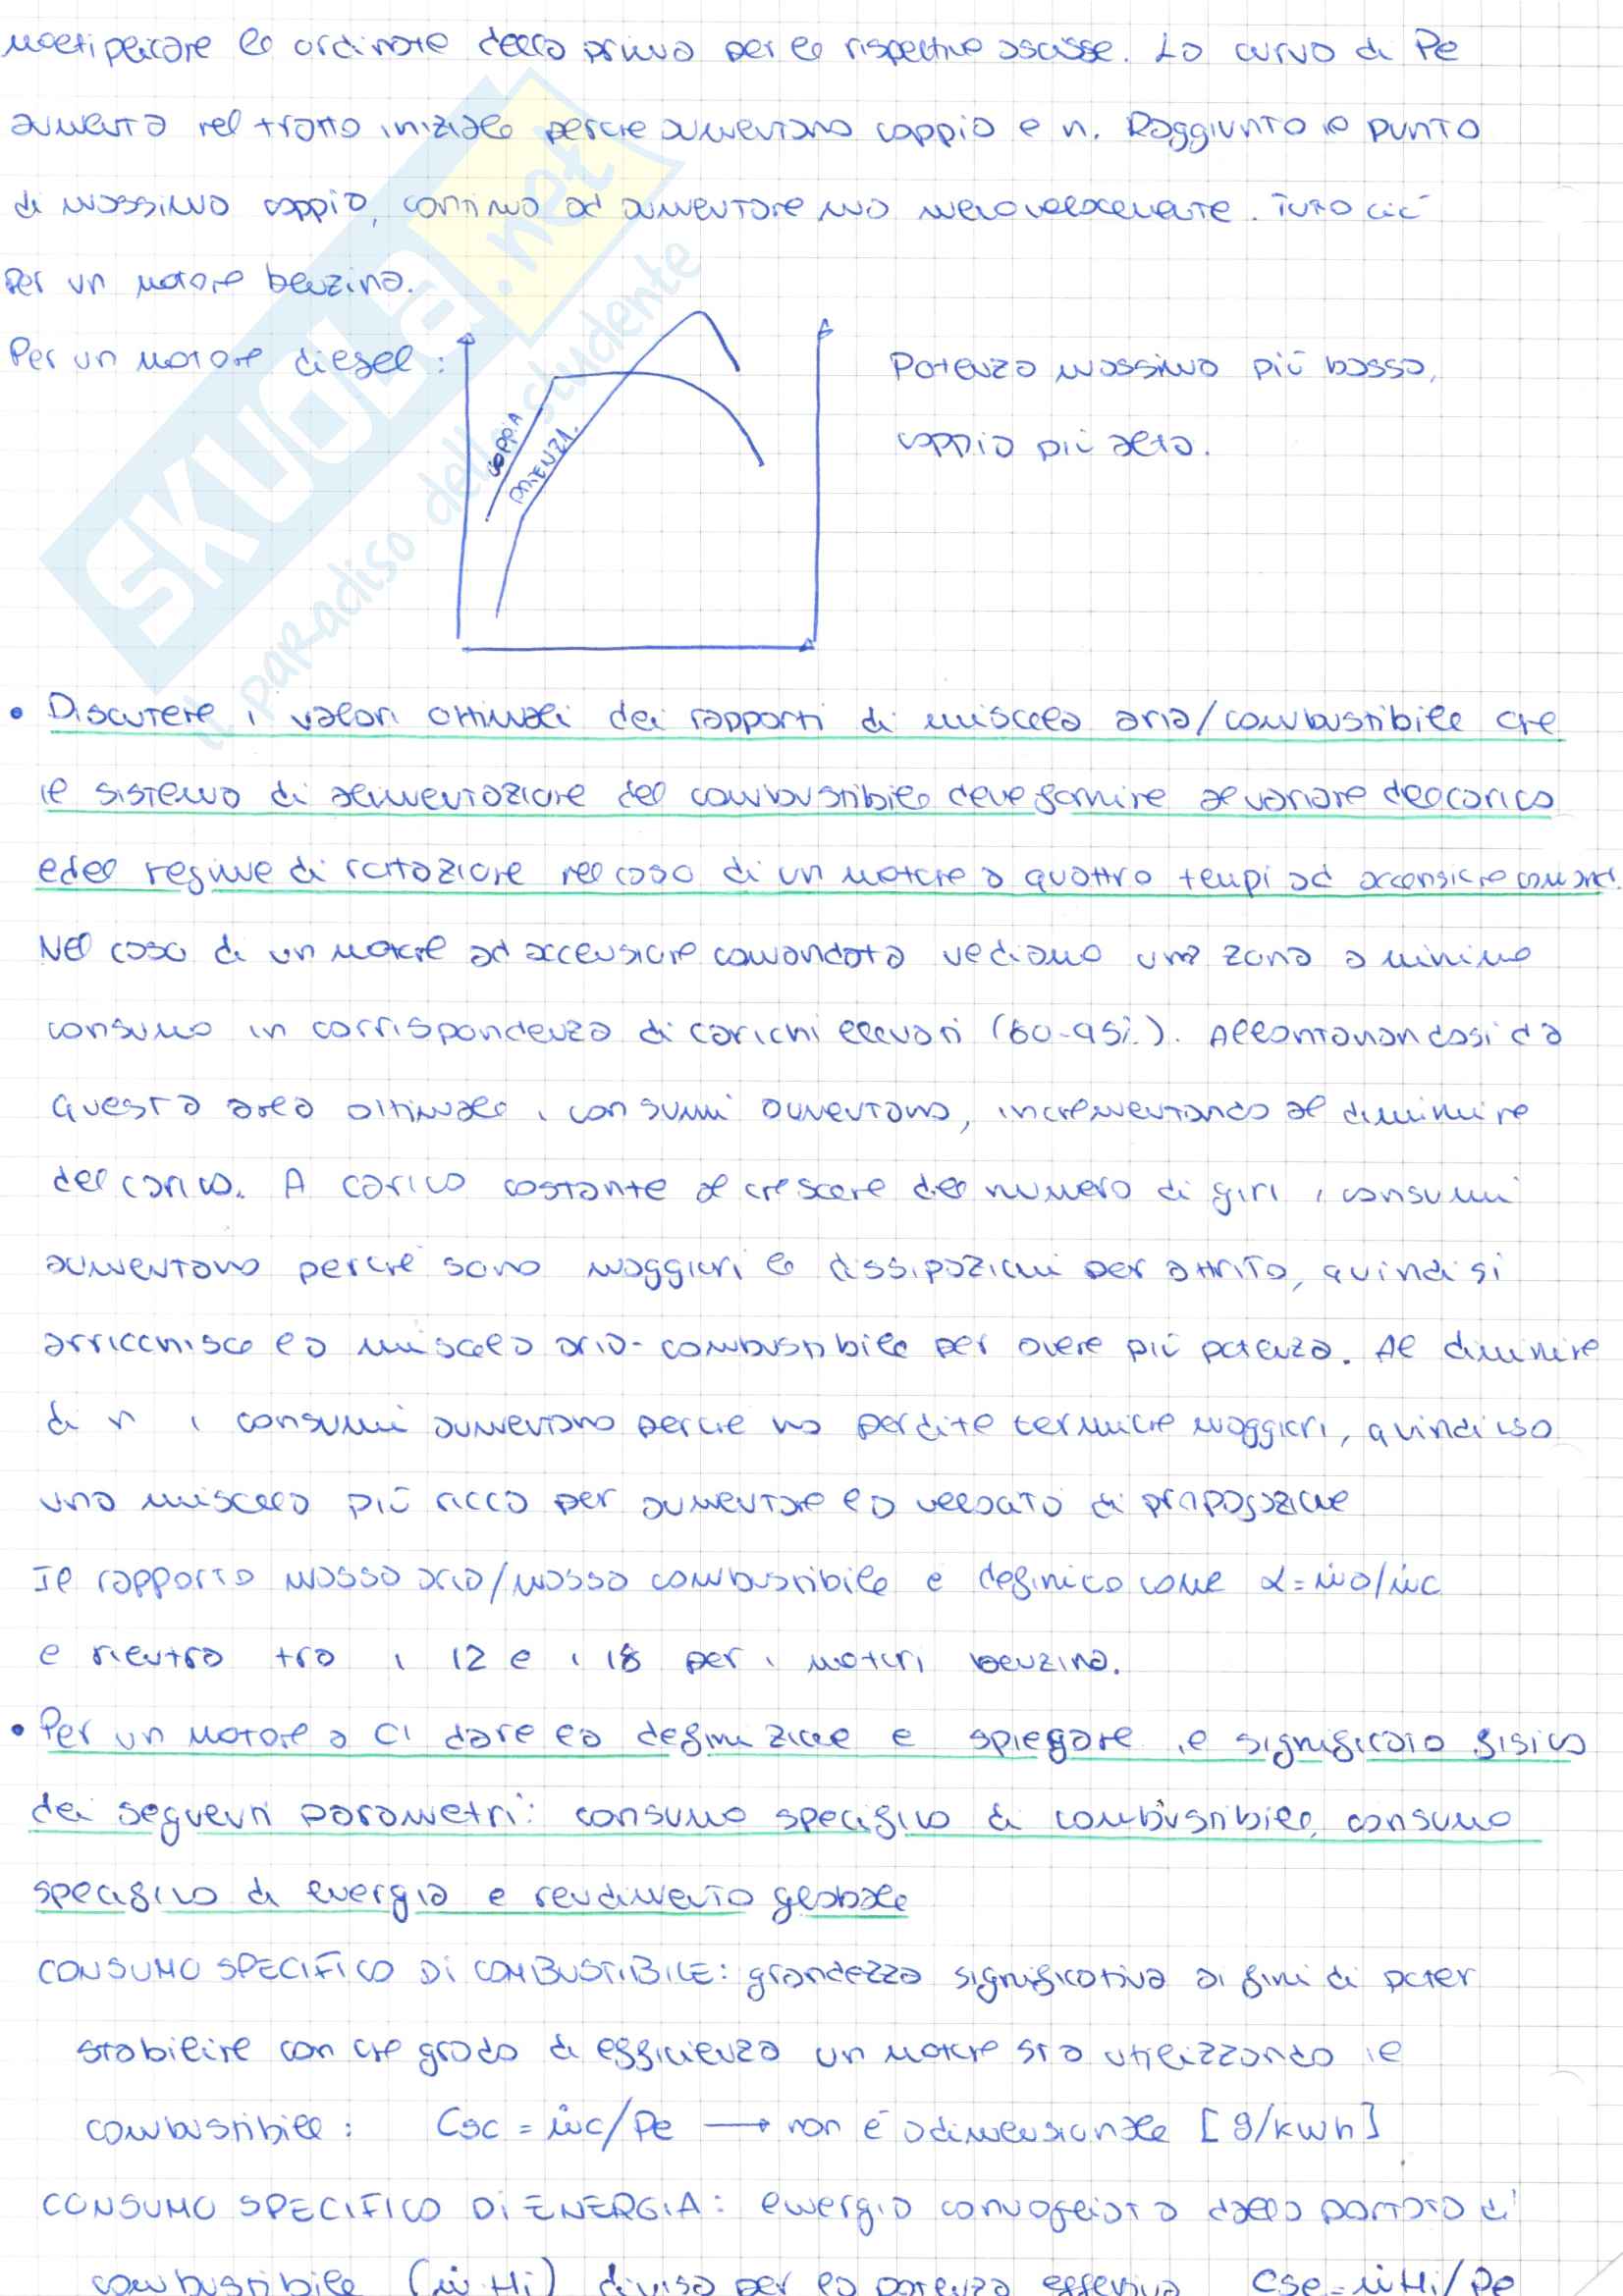 moltiplicare le ordinate della prima per le rispettive ascisse. La curva di Pe
aumenta nel tratto iniziale perché aumentano coppia e n. Raggiunto il punto
di massima coppia, continua ad aumentare ma meno velocemente. Tutto ciò
per un motore benzina.
Per un motore diesel:
Potenza massima più bassa,
coppia più alta.
COPPIA
POTENZA.
SKUOLA.net
il paradiso dello studente
• Discutere i valori ottimali dei rapporti di miscela aria/combustibile che
il sistema di alimentazione del combustibile deve fornire al variare del carico
e del regime di rotazione nel caso di un motore a quattro tempi ad accensione comand.
Nel caso di un motore ad accensione comandata vediamo una zona a minimo
consumo in corrispondenza di carichi elevati (80-95%). Allontanandosi da
questa area ottimale i consumi aumentano, incrementando al diminuire
del carico. A carico costante al crescere del numero di giri i consumi
aumentano perché sono maggiori le dissipazioni per attrito, quindi si
arricchisce la miscela aria-combustibile per avere più potenza. Al diminuire
di n i consumi aumentano perché ho perdite termiche maggiori, quindi uso
una miscela più ricca per aumentare la velocità di propagazione
Il rapporto massa aria/massa combustibile è definito come α = ṁa/ṁc
e rientra tra i 12 e i 18 per i motori benzina.
• Per un motore a CI dare la definizione e spiegare il significato fisico
dei seguenti parametri: consumo specifico di combustibile, consumo
specifico di energia e rendimento globale
CONSUMO SPECIFICO DI COMBUSTIBILE: grandezza significativa ai fini di poter
stabilire con che grado di efficienza un motore sta utilizzando il
combustibile: Csc = ṁc/Pe → non è adimensionale [g/kWh]
CONSUMO SPECIFICO DI ENERGIA: energia convogliata dalla portata di
combustibile (ṁ Hi) diviso per la potenza effettiva Cse = ṁHi/Pe